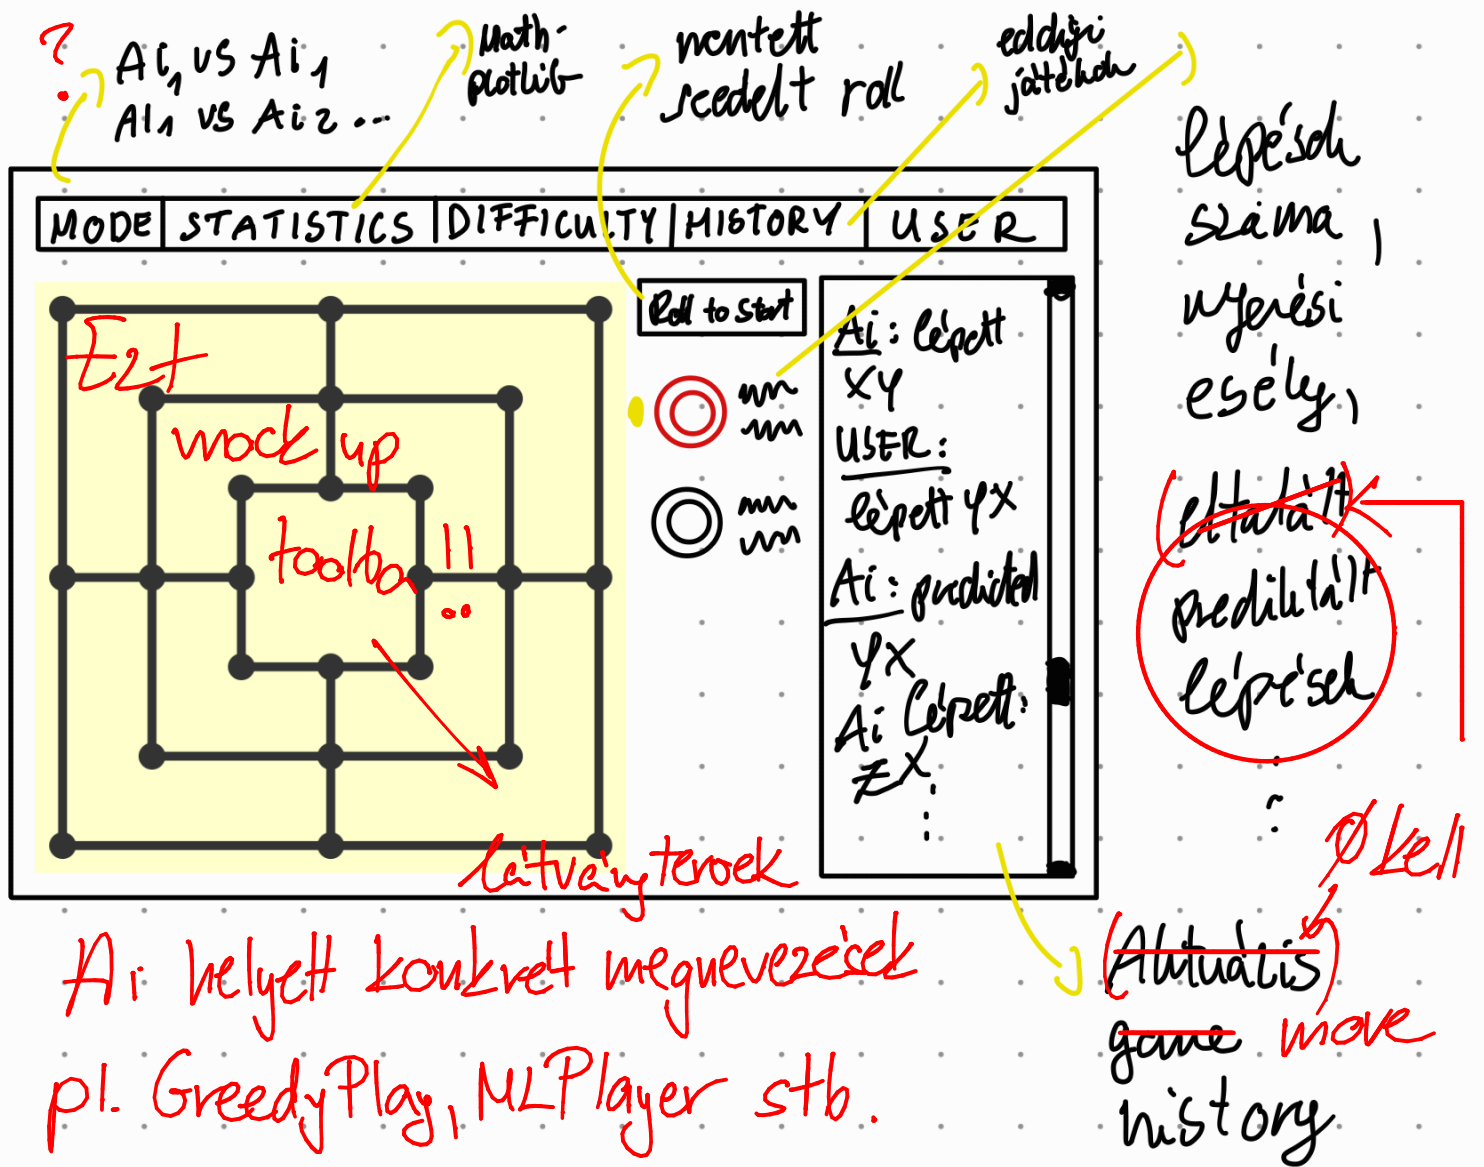 ?
Ai1 vs Ai1
AI1 vs Ai2...
Math-
plotlib
mentett
seedelt roll
eddigi
játékok
lépések
száma,
nyerési
esély,
(eltalált)
prediktált
lépések
MODE
STATISTICS
DIFFICULTY
HISTORY
USER
Roll to start
Ai: lépett
XY
USER:
lépett YX
Ai: predicted
YX
Ai lépett:
ZX
Ezt
mock up
toolba!!
látványterek
Ø kell
(Aktuális)
game move
history
Ai helyett konkrét megnevezések
pl. GreedyPlay, MLPlayer stb.